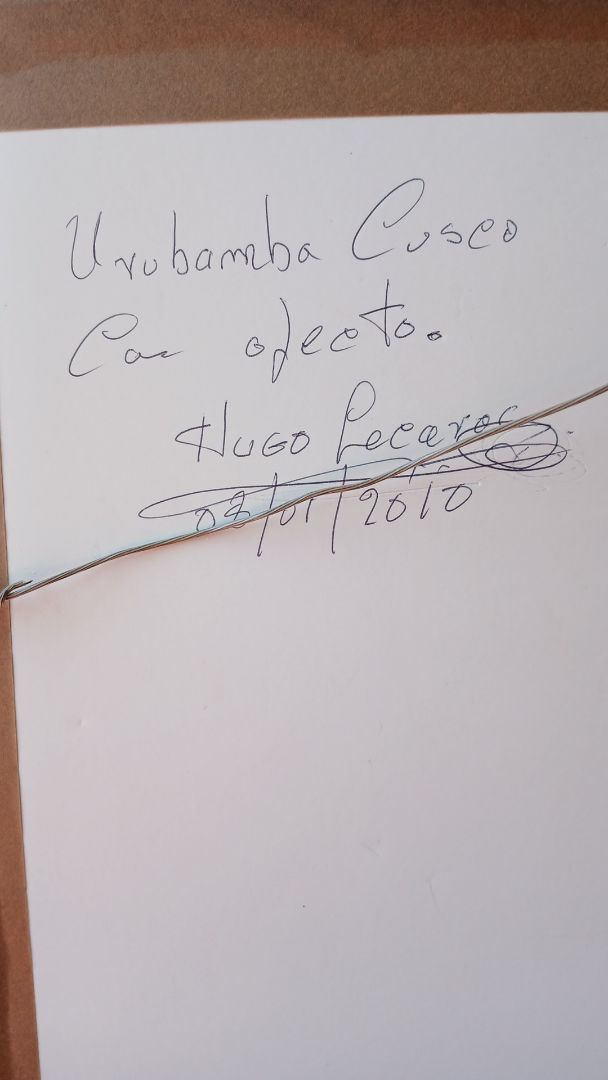 Urubamba Cusco
Con afecto.
Hugo Lecaros
03/01/2010